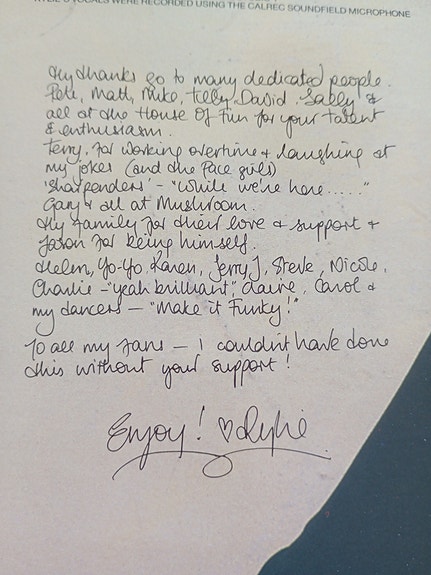 VOCALS WERE RECORDED USING THE CALREC SOUNDFIELD MICROPHONE
My thanks go to many dedicated people.
Pete, Matt, Mike, Telly, David, Sally &
all at the House Of Fun for your talent
& enthusiasm.
Terry, for working overtime & laughing at
my jokes (and the Face girls)
'Sharpenders' - "While we're here....."
Gary & all at Mushroom.
My family for their love & support &
Jason for being himself.
Helen, Yo-Yo, Karen, Jerry J, Steve, Nicole,
Charlie - "yeah brilliant", Claire, Carol &
my dancers — "Make it Funky!"
To all my fans — I couldn't have done
this without your support!
Enjoy! ♡ Kylie